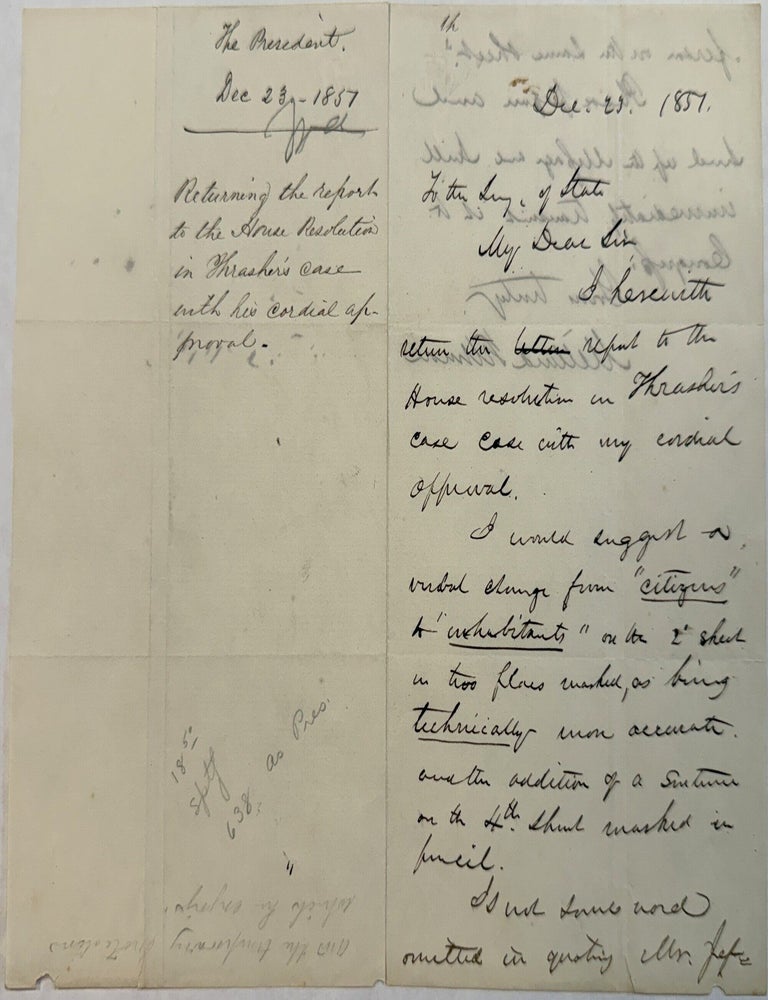 The President.
Dec 23 - 1851
Returning the report
to the House Resolution
in Thrasher's case
with his cordial ap-
proval.
1851
638
as Pres.
and the temporary protection
which he enjoys.
Dec. 23. 1851.
To the Secy. of State
My Dear Sir
I herewith
return the report to the
House resolution in Thrasher's
case case with my cordial
approval.
I would suggest a
verbal change from "citizens"
to "inhabitants" on the 2d sheet
in two places marked, as being
technically more accurate.
and the addition of a sentence
on the 4th. sheet marked in
pencil.
Is not some word
omitted in quoting Mr. Jef=